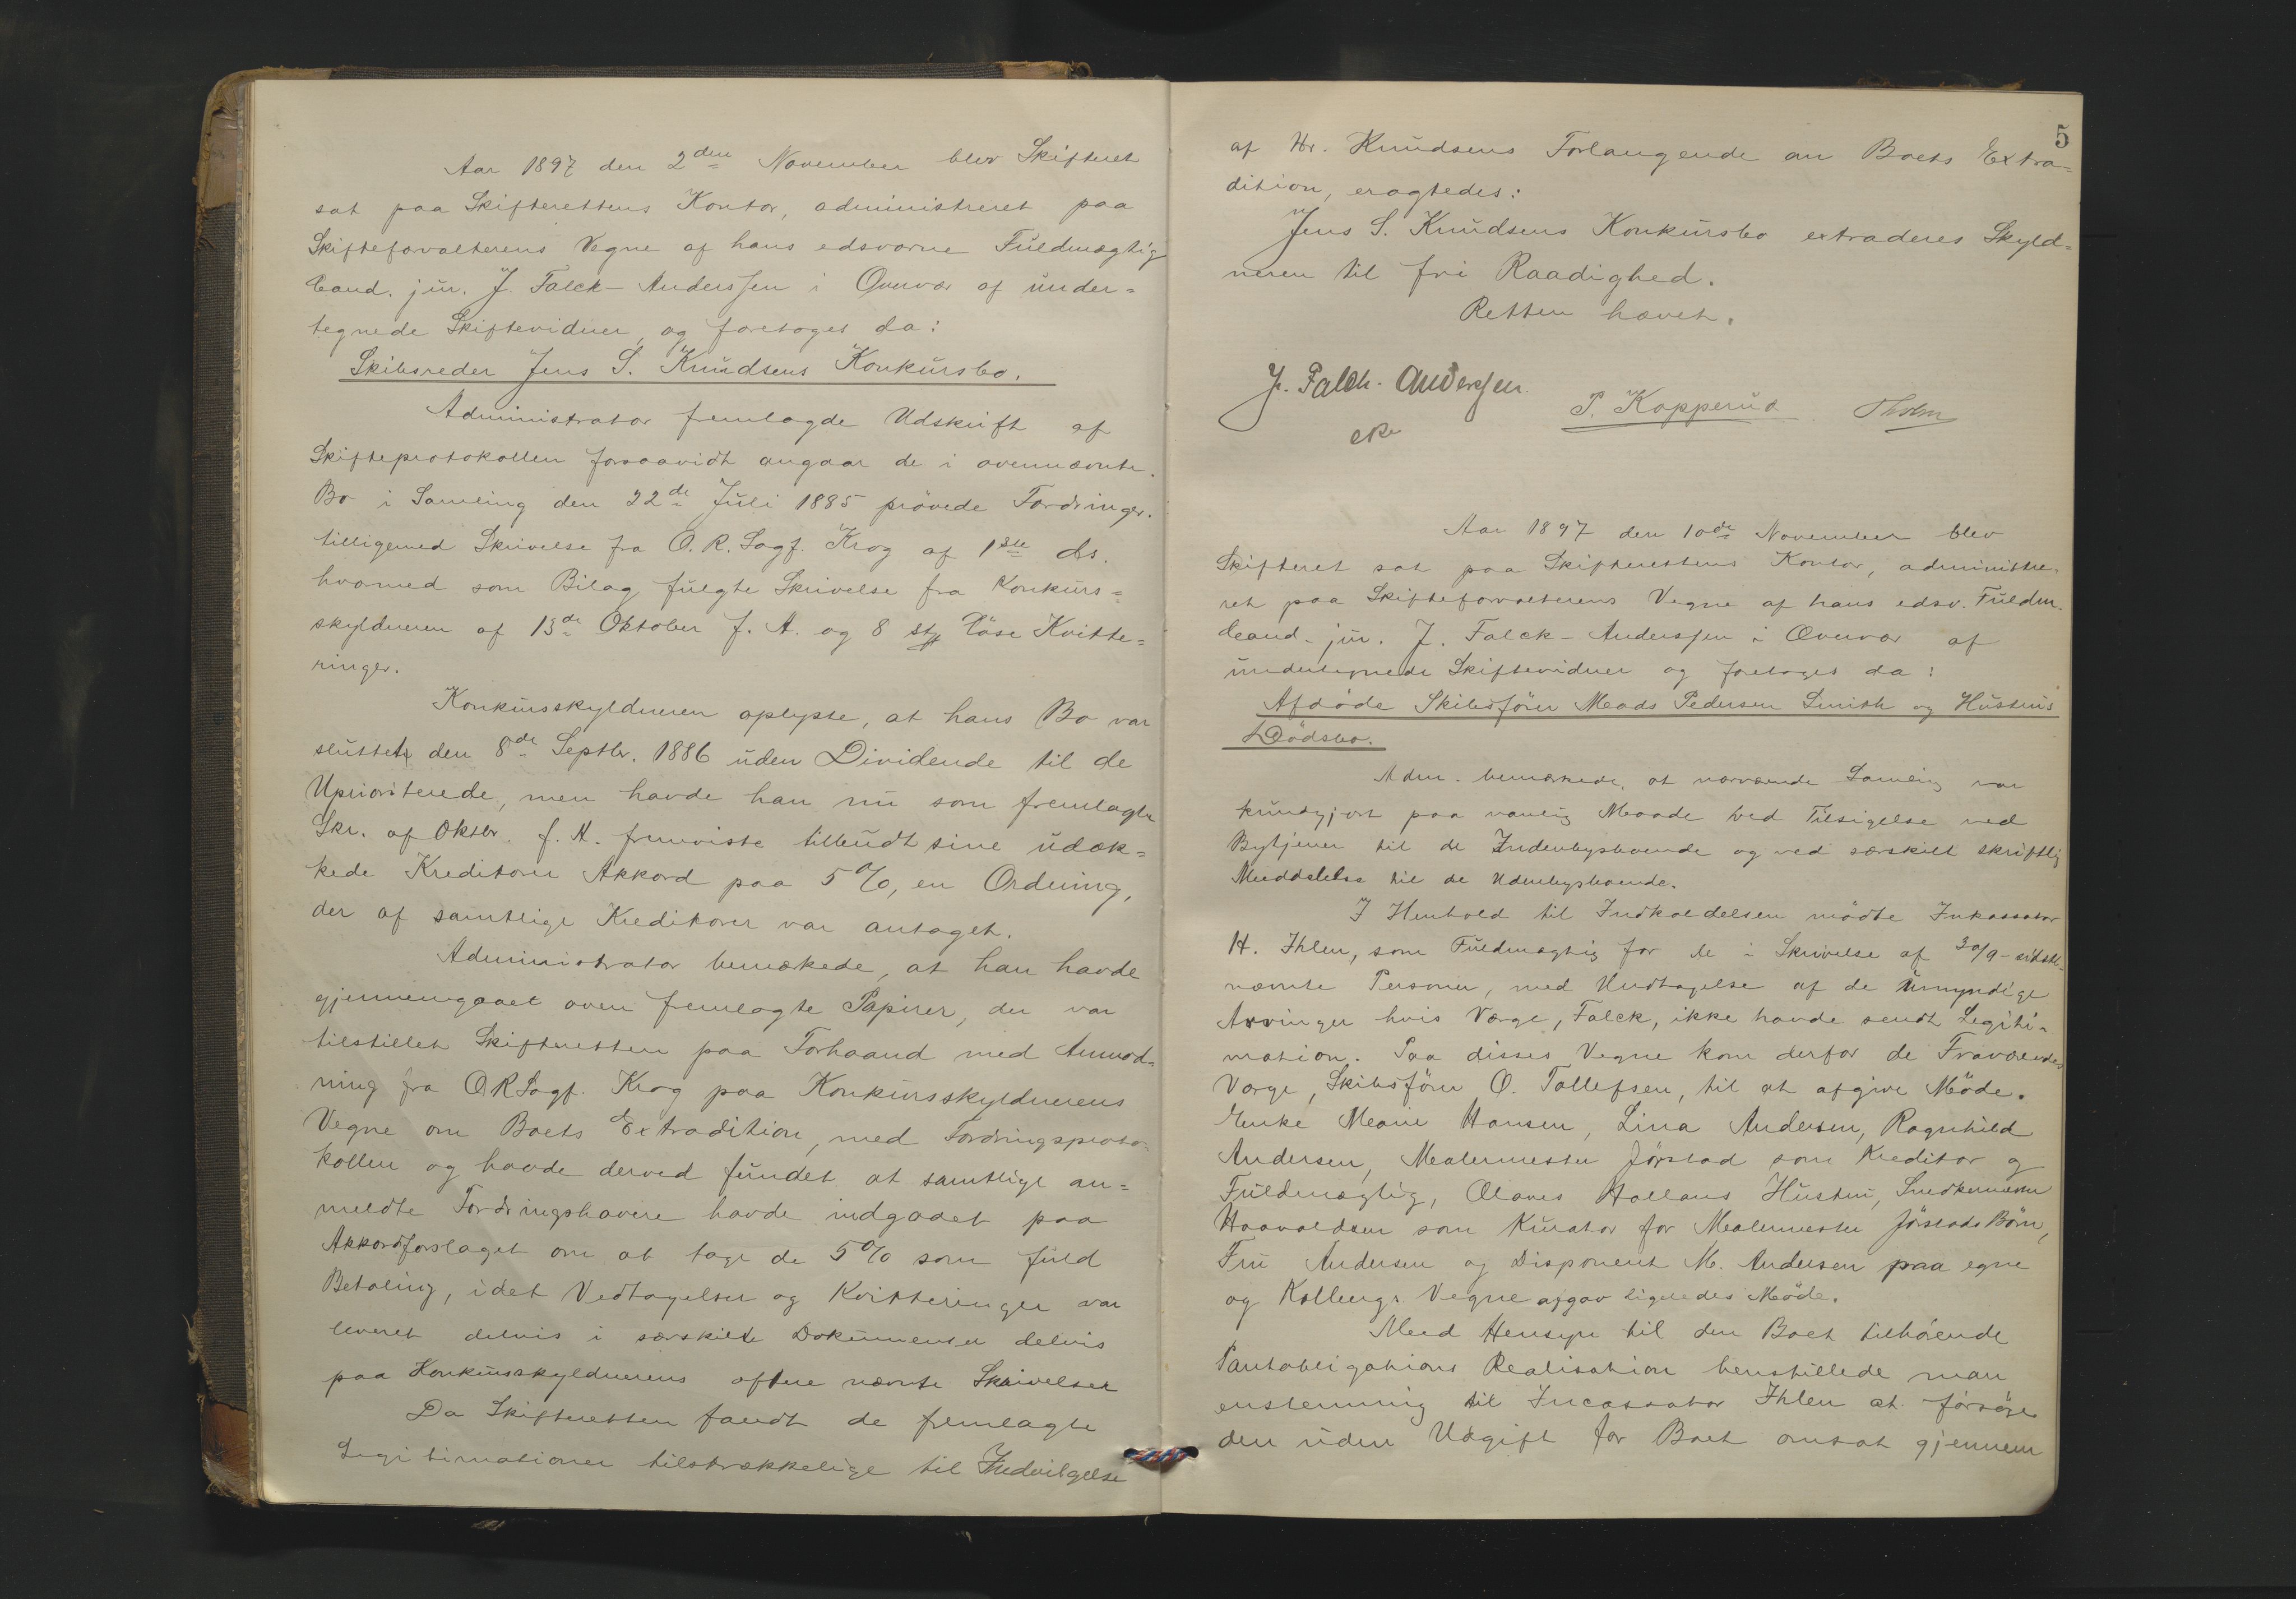 Aar 1897 den 2den November blev Skifteret
sat paa Skifterettens Kontor, administreret paa
Skifteforvalterens Vegne af hans edsvorne Fuldmægtig
Cand. jur. J. Falck-Anderssen i Overvær af under=
tegnede Skiftevidner, og foretoges da:
Skibsreder Jens S. Knudsens Konkursbo.
Administrator fremlagde Udskrift af
Skifteprotokollen forsaavidt angaar de i ovennævnte
Bo i Samling den 22de Juli 1885 prövede Fordringer.
tilligemed Skrivelse fra O. R. Sagf. Krog af 1ste ds.
hvormed som Bilag fulgte Skrivelse fra Konkurs=
skyldneren af 13de Oktober f. A. og 8 stk löse Kvitte=
ringer.
Konkursskyldneren oplyste, at hans Bo var
sluttet den 8de Septbr. 1886 uden Dividende til de
Uprioriterede, men havde han nu som fremlagte
Skr. af Oktbr. f. A. fremviste tilbudt sine udæk=
kede Kreditorer Akkord paa 5%, en Ordning,
der af samtlige Kreditorer var antaget.
Administrator bemærkede, at han havde
gjennemgaaet oven fremlagte Papirer, der var
tilstillet Skifteretten paa Forhaand med Anmod=
ning fra ORSagf. Krog paa Konkursskyldnerens
Vegne om Boets Extradition, med Fordringsproto=
kollen og havde derved fundet at samtlige an=
meldte Fordringshavere havde indgaaet paa
Akkordforslaget om at tage de 5% som fuld
Betaling, idet Vedtagelser og Kvitteringer var
leveret delvis i særskilte Dokumenter delvis
paa Konkursskyldnerens oftere nævnte Skrivelser
Da Skifteretten fandt de fremlagte
Legitimationer tilstrækkelige til Indvilgelse
5
af Hr. Knudsens Forlangende om Boets Extra=
dition, eragtedes:
Jens S. Knudsens Konkursbo extraderes Skyld=
neren til fri Raadighed.
Retten hævet.
J. Falck-Anderssen.
P. Kopperud Tholm
Aar 1897 den 10de November blev
Skifteret sat paa Skifterettens Kontor, administre=
ret paa Skifteforvalterens Vegne af hans edsv. Fuldm.
Cand. jur. J. Falck-Anderssen i Overvær af
undertegnede Skiftevidner og foretoges da:
Afdöde Skibsförer Mads Pedersen Smith og Hustrus
Dödsbo.
Adm. bemærkede, at nærværende Samling var
kundgjort paa vanlig Maade ved Tilsigelse ved
Bytjener til de Indenbysboende og ved særskilt skriftlig
Meddelelse til de Udenbysboende.
I Henhold til Indkaldelsen mödte Inkassator
H. Ihlen, som Fuldmægtig for de i Skrivelse af 30/9 sidst-
nævnte Personer, med Undtagelse af de Umyndige
Arvinger hvis Værge, Falck, ikke havde sendt Legiti=
mation. Paa disses Vegne kom derfor de Fraværendes
Værge, Skibsförer O. Tollefsen, til at afgive Möde.
Enke Marie Hansen, Lina Andersen, Ragnhild
Andersen, Malermester Jörstad som Kreditor og
Fuldmægtig, Olaves Hollans Hustru, Snedkermester
Haavaldsen som Kurator for Malermester Jörstads Börn,
Fru Andersen og Disponent M. Andersen paa egne
og Kollengs Vegne afgav ligeledes Möde.
Med Hensyn til den Boet tilhörende
Pantobligations Realisation henstillede man
enstemmig til Incassator Ihlen at forsöge
den uden Udgift for Boet omsat gjennem